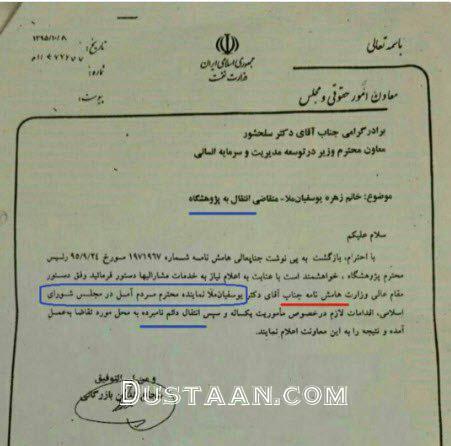 باسمه تعالی
جمهوری اسلامی ایران
وزارت نفت
تاریخ: ۱۳۹۵/۱۰/۸
شماره:
پیوست:
معاون امور حقوقی و مجلس
برادر گرامی جناب آقای دکتر سلحشور
معاون محترم وزیر در توسعه مدیریت و سرمایه انسانی
موضوع: خانم زهره یوسفیان‌ملا- متقاضی انتقال به پژوهشگاه
سلام علیکم
با احترام، بازگشت به پی نوشت جنابعالی هامش نامه شماره ۱۹۷۱۹۶۷ مورخ ۹۵/۹/۲۴ رئیس
محترم پژوهشگاه ، خواهشمند است با عنایت به اعلام نیاز به خدمات مشارالیها دستور فرمائید وفق دستور
مقام عالی وزارت هامش نامه جناب آقای دکتر یوسفیان‌ملا نماینده محترم مردم آمل در مجلس شورای
اسلامی، اقدامات لازم در خصوص مأموریت یکساله و سپس انتقال دائم نامبرده به محل مورد تقاضا به‌عمل
آمده و نتیجه را به این معاونت اعلام نمایند.
و من ا... التوفیق
بازرگانی
DUSTAAN.COM